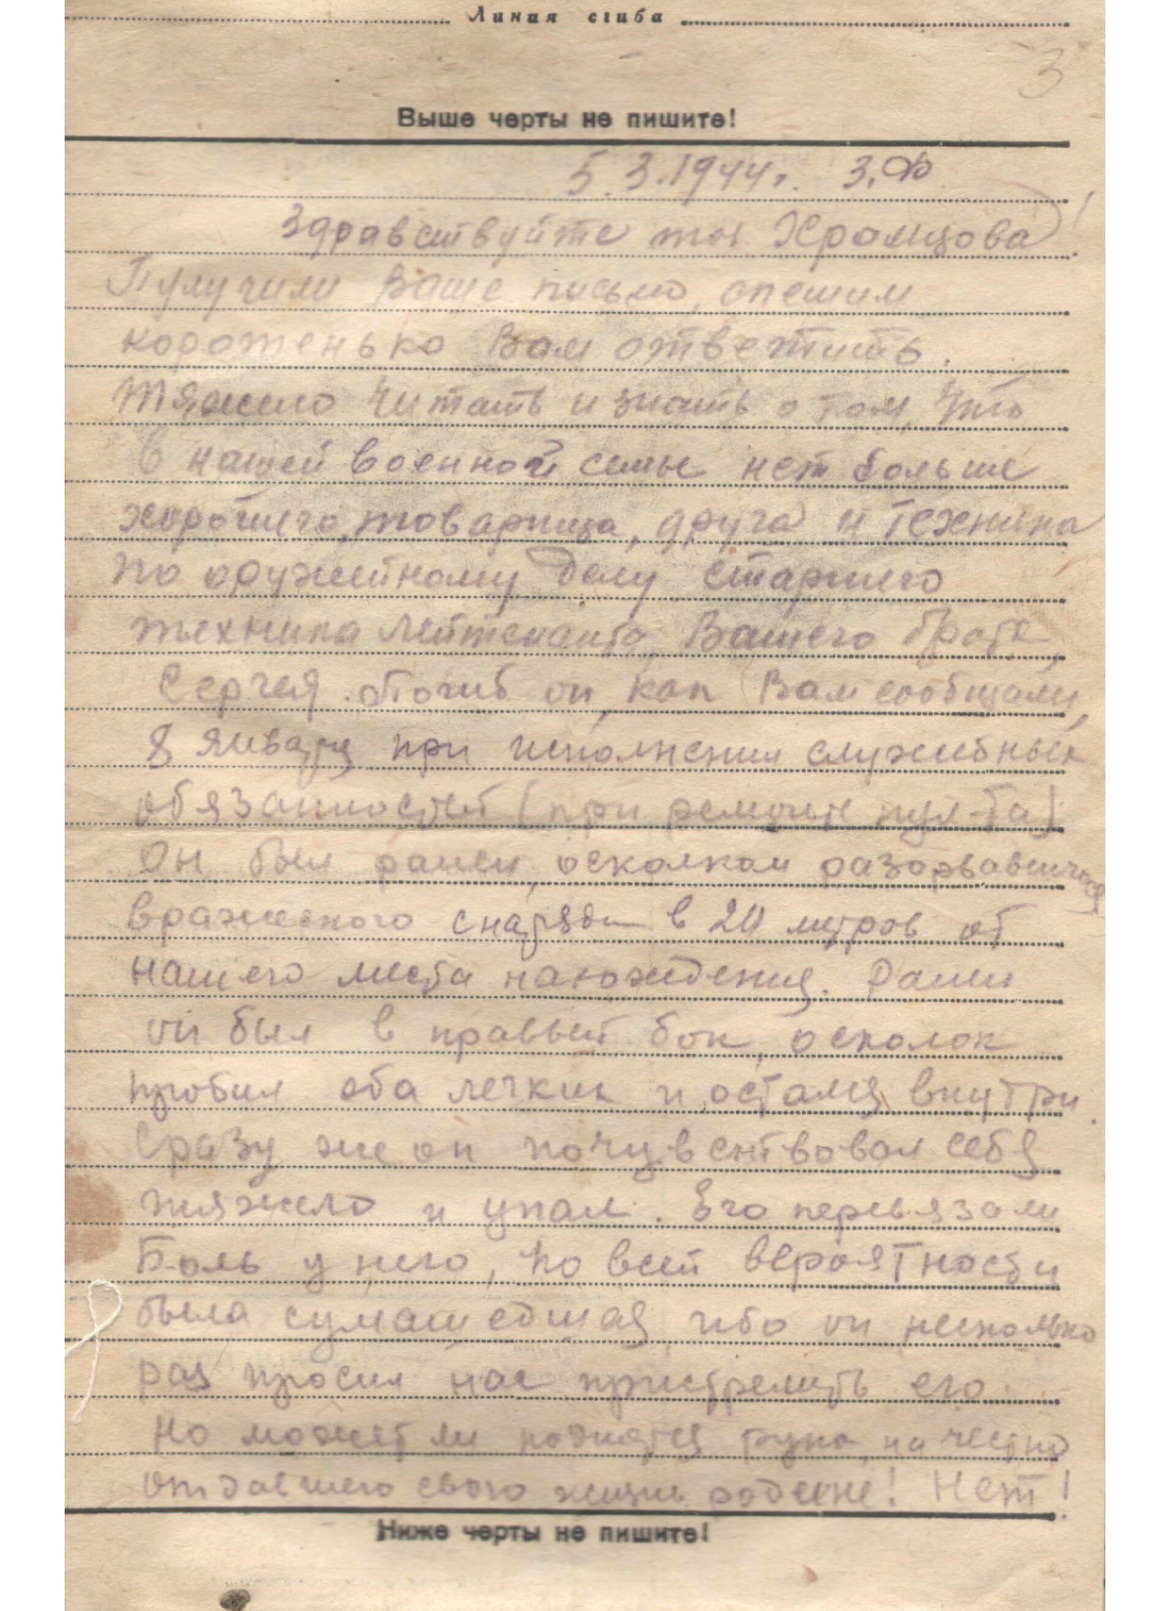 Линия сгиба
3
Выше черты не пишите!
5.3.1944г. З.Ф.
Здравствуйте тов. Храмцова!
Пулучили Ваше письмо, спешим
короженько Вам ответить.
Тяжело читать и знать о том, что
в нашей военной семье нет больше
хорошего, товарища, друга и техника
по оружейному делу старшего
техника лейтенанта, Вашего брата,
Сергея. Погиб он, как Вам сообщали,
8 января при исполнении служебных
обязанностей (при ремонте пул-та)
Он был ранен, осколком разорвавшегося
вражеского снаряда в 20 метров от
нашего места нахождения. Ранен
он был в правый бок, осколок
пробил оба легких и остался внутри.
Сразу же он почувствовал себя
тяжело и упал. Его перевязали
Боль у него, по всей вероятности
была сумашедшая ибо он несколько
раз просил нас пристрелить его.
Но может ли поднятся рука на честно
отдавшего свою жизнь родине! Нет!
Ниже черты не пишите!